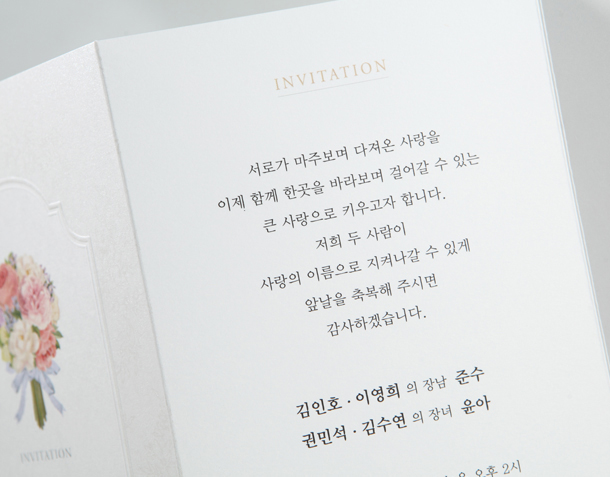 INVITATION
서로가 마주보며 다져온 사랑을
이제 함께 한곳을 바라보며 걸어갈 수 있는
큰 사랑으로 키우고자 합니다.
저희 두 사람이
사랑의 이름으로 지켜나갈 수 있게
앞날을 축복해 주시면
감사하겠습니다.
김인호 · 이영희 의 장남 준수
권민석 · 김수연 의 장녀 윤아
오후 2시
INVITATION